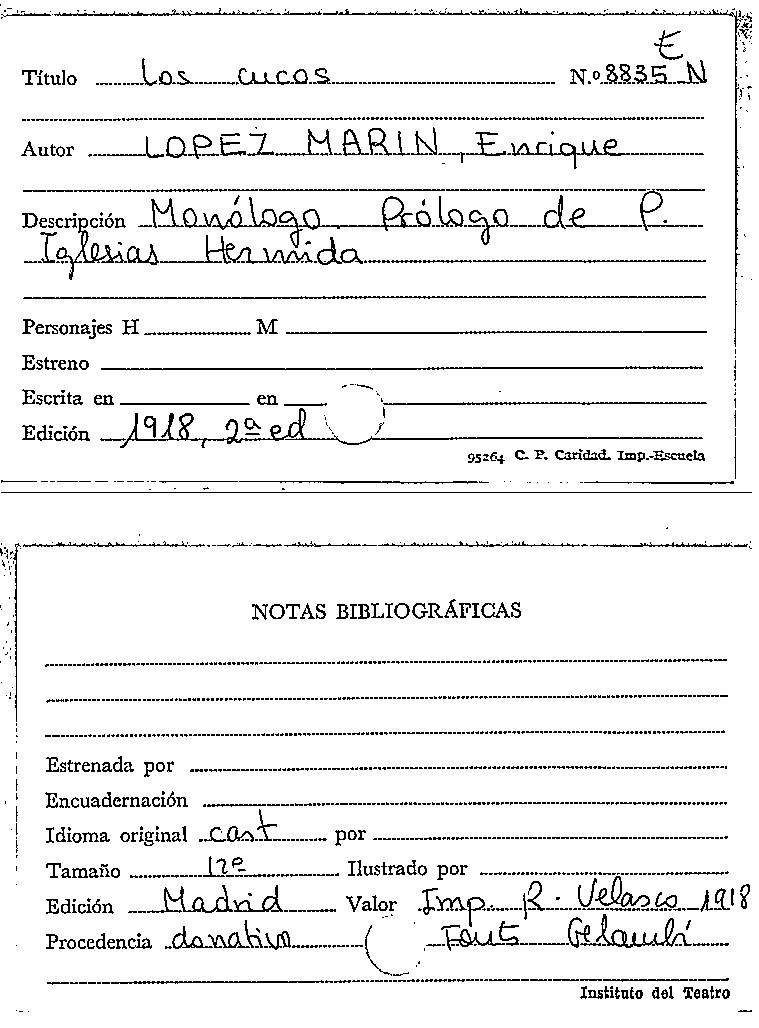 E
Título Los cucos N.º 8835 N
Autor LOPEZ MARIN, Enrique
Descripción Monólogo. Prólogo de P.
Iglesias Hermida
Personajes H M
Estreno
Escrita en en
Edición 1918, 2ª ed
95264 C. P. Caridad. Imp.-Escuela
NOTAS BIBLIOGRÁFICAS
Estrenada por
Encuadernación
Idioma original cast por
Tamaño 12º Ilustrado por
Edición Madrid Valor Imp. R. Velasco 1918
Procedencia donativo Fonts Gelambí
Instituto del Teatro